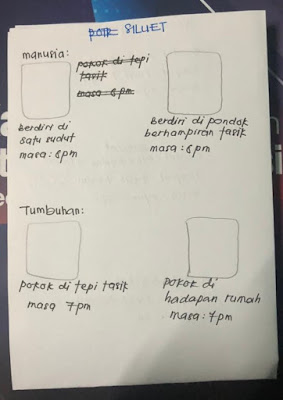 SILUET
manusia:
pokok di tepi
tasik
masa 6pm
Berdiri di
satu sudut
masa : 6pm
Berdiri di pondok
berhampiran tasik
masa : 6pm
Tumbuhan:
pokok di tepi tasik
masa 7pm
pokok di
hadapan rumah
masa : 7pm